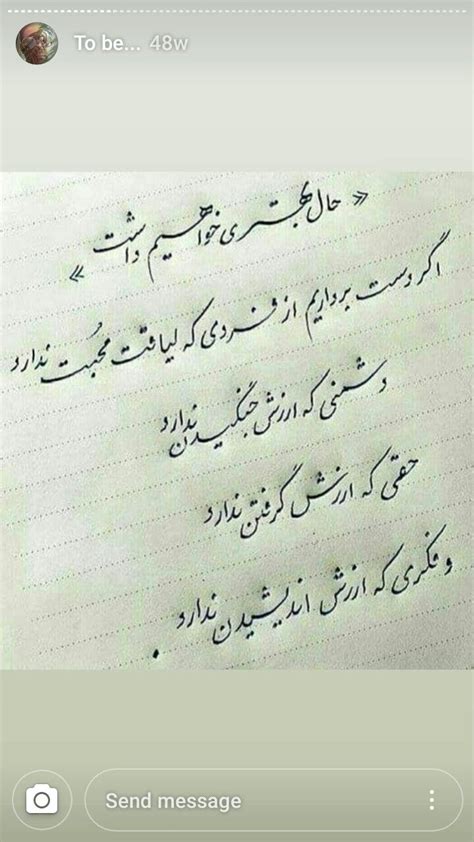 To be... 48w
« حال بهتری خواهیم داشت »
اگر دست برداریم از فردی که لیاقت محبت ندارد
دشمنی که ارزش جنگیدن ندارد
حقی که ارزش گرفتن ندارد
و فکری که ارزش اندیشیدن ندارد.
Send message